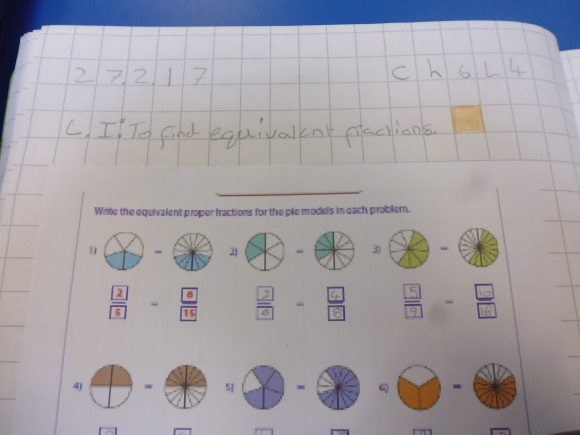 27.2.17 Ch6L4
L.I: To find equivalent fractions.
Write the equivalent proper fractions for the pie models in each problem.
1) = 2) = 3) =
2 6 2 4 5 10
= = =
5 15 6 8 9 18
4) = 5) = 6) =